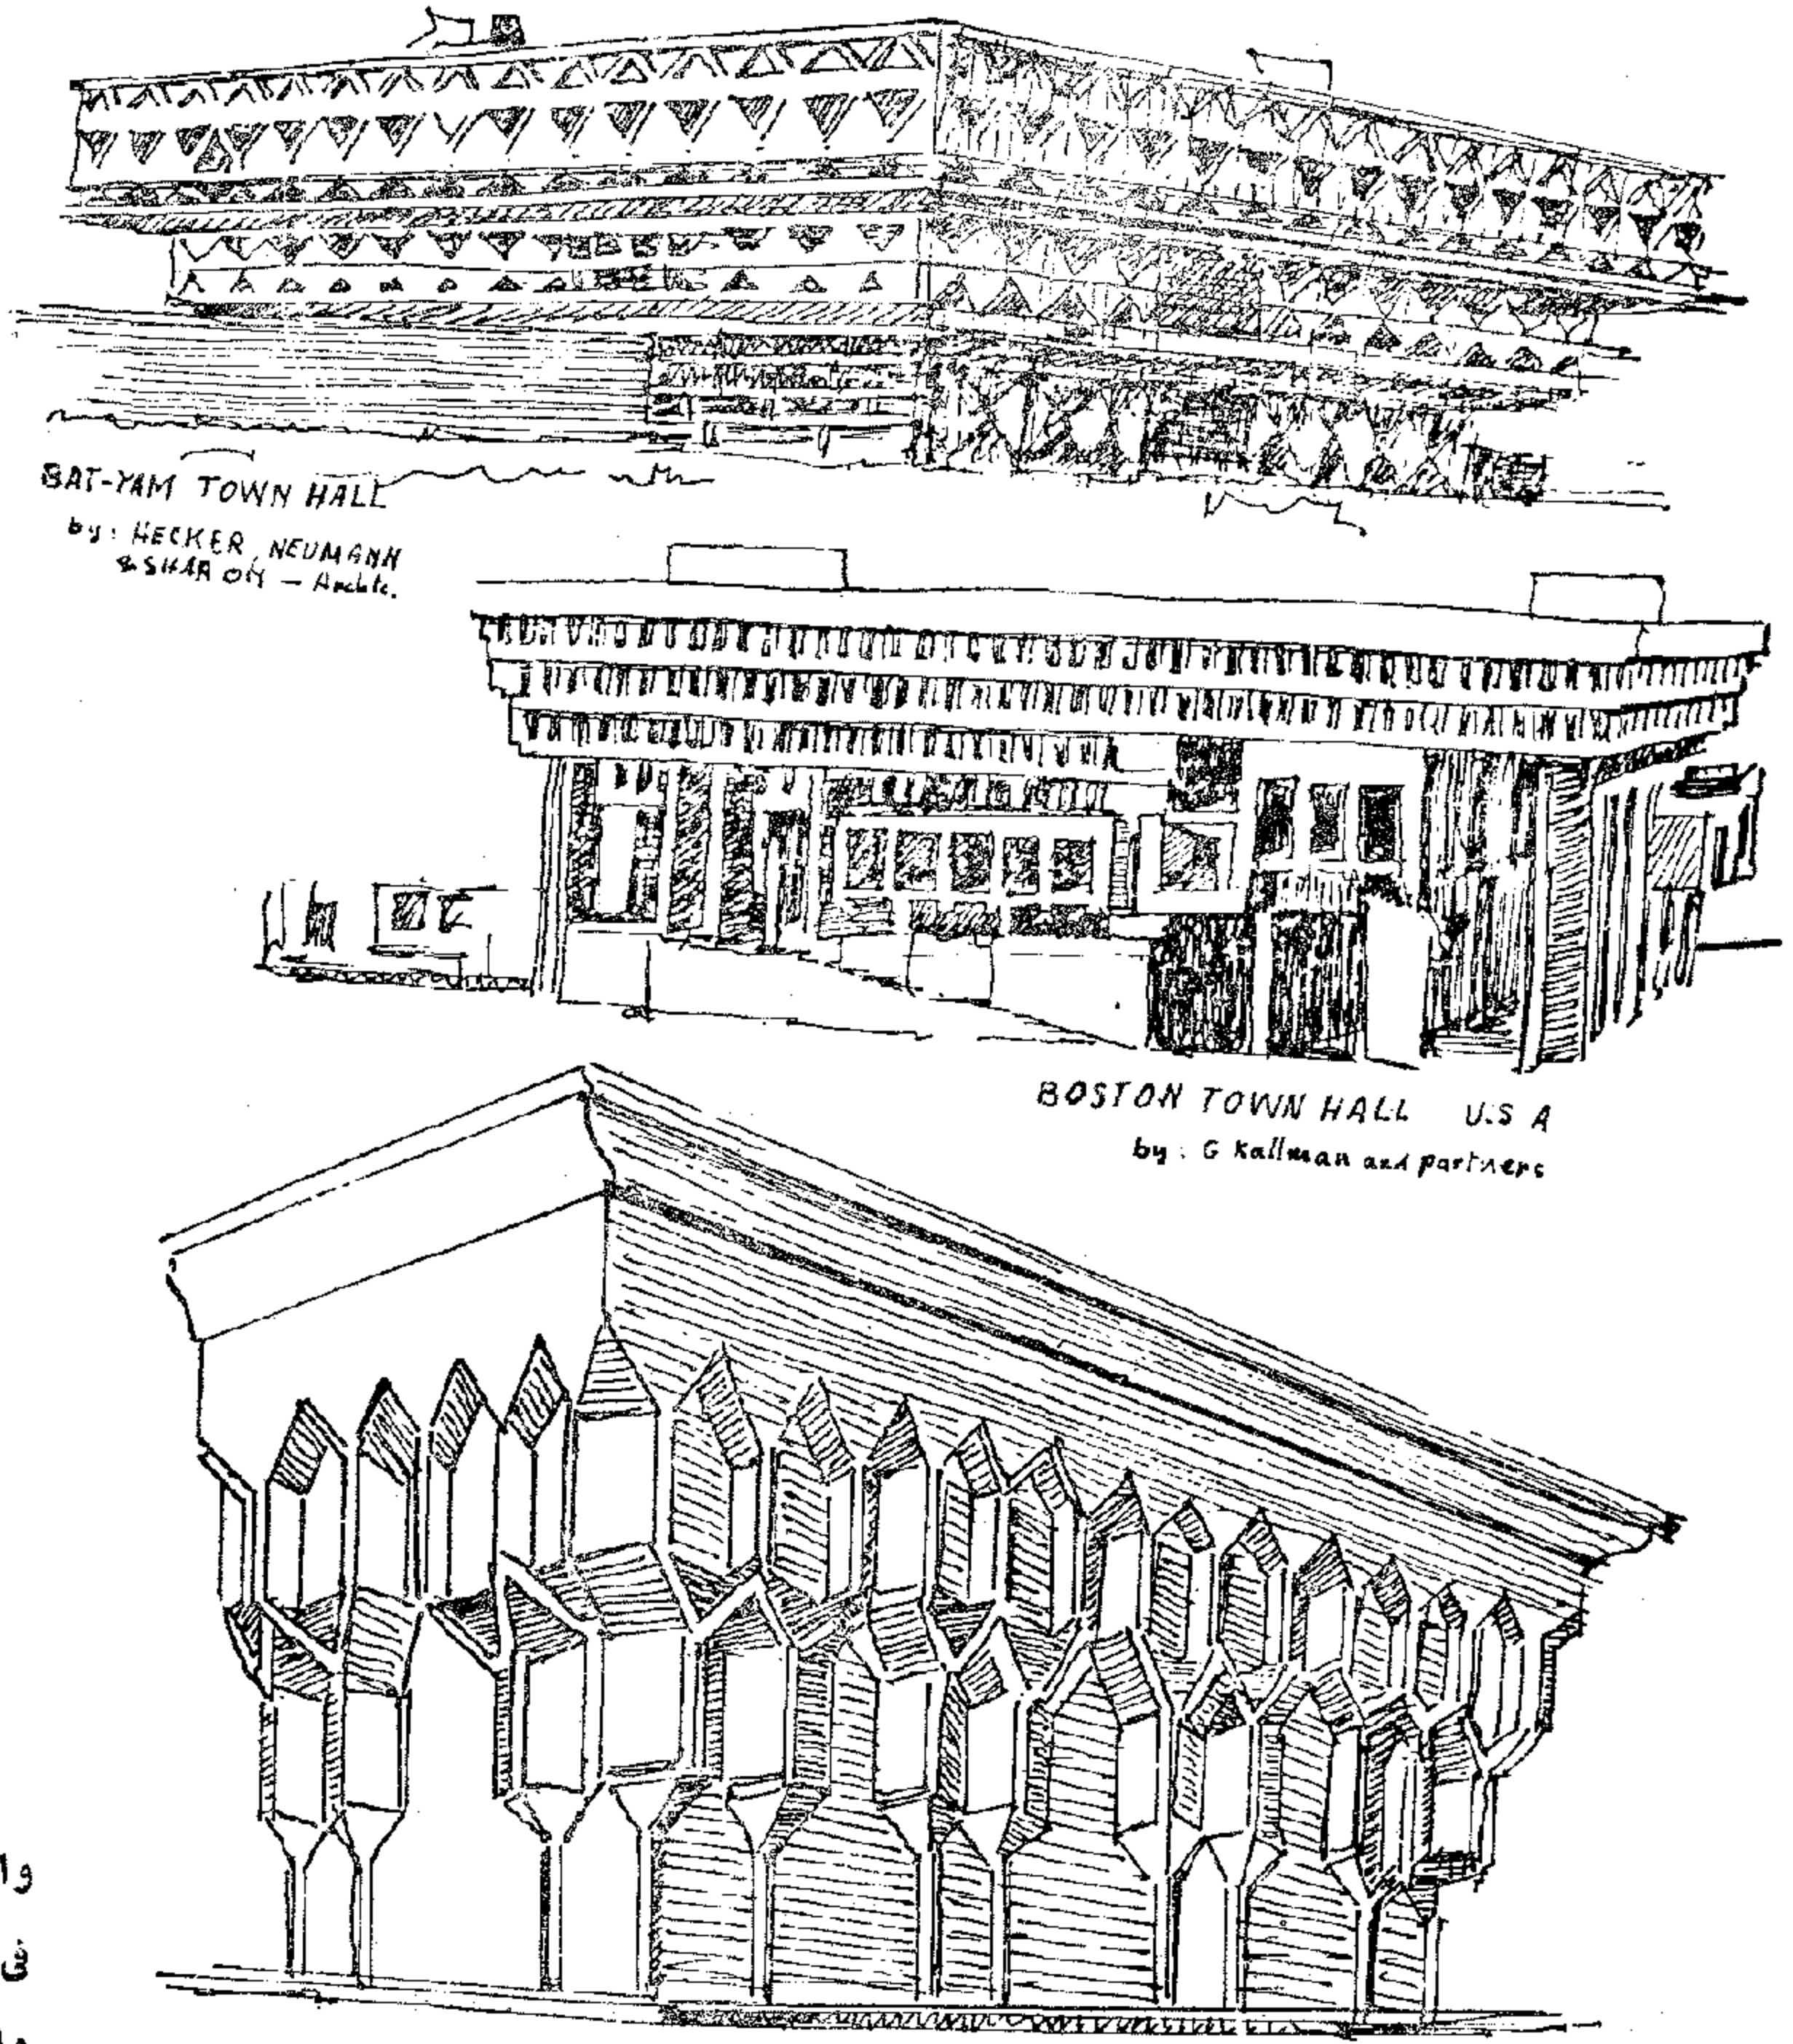 BAT-YAM TOWN HALL
by: HECKER, NEUMANN
& SHARON — Archts.
BOSTON TOWN HALL U.S A
by: G Kallman and partners